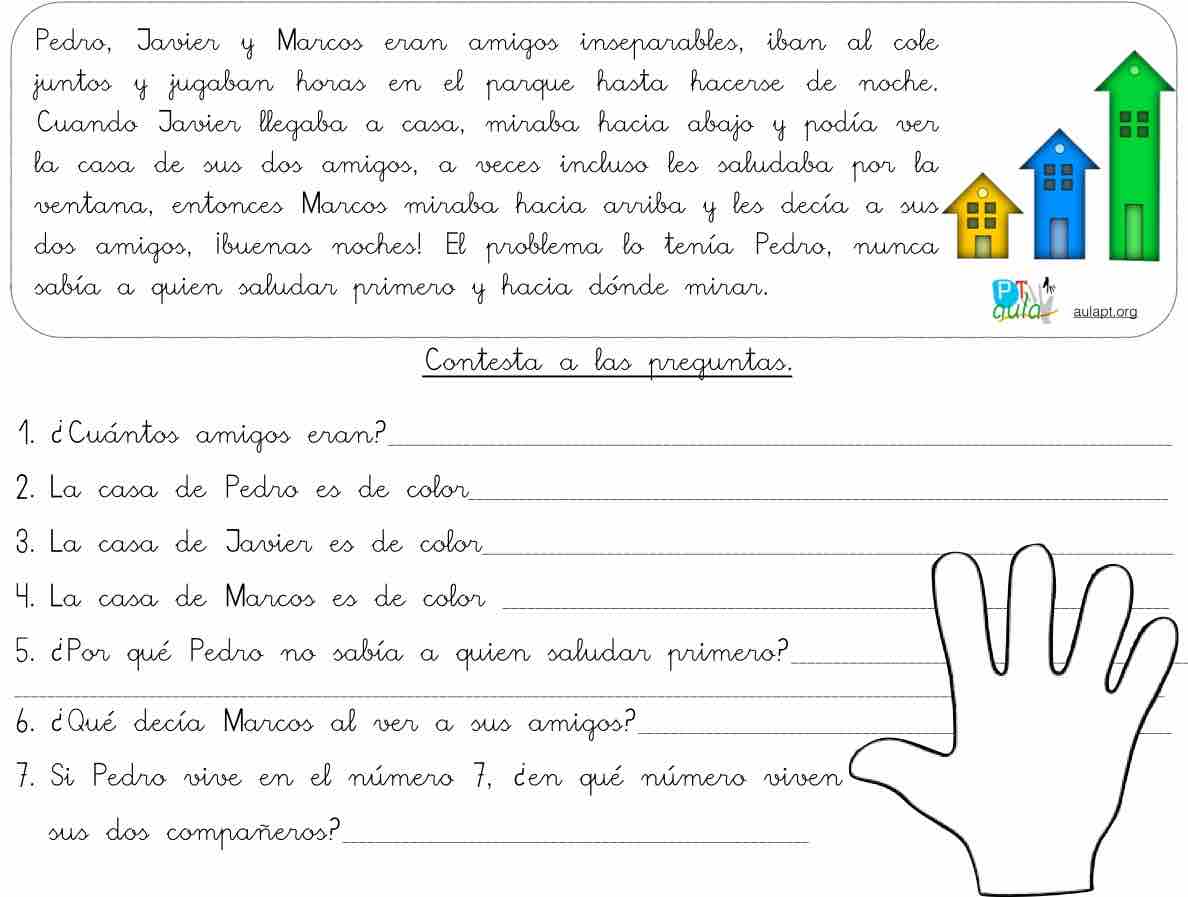 Pedro, Javier y Marcos eran amigos inseparables, iban al cole
juntos y jugaban horas en el parque hasta hacerse de noche.
Cuando Javier llegaba a casa, miraba hacia abajo y podía ver
la casa de sus dos amigos, a veces incluso les saludaba por la
ventana, entonces Marcos miraba hacia arriba y les decía a sus
dos amigos, ¡buenas noches! El problema lo tenía Pedro, nunca
sabía a quien saludar primero y hacia dónde mirar.
PT
aula
aulapt.org
Contesta a las preguntas.
1. ¿Cuántos amigos eran?
2. La casa de Pedro es de color
3. La casa de Javier es de color
4. La casa de Marcos es de color
5. ¿Por qué Pedro no sabía a quien saludar primero?
6. ¿Qué decía Marcos al ver a sus amigos?
7. Si Pedro vive en el número 7, ¿en qué número viven
sus dos compañeros?